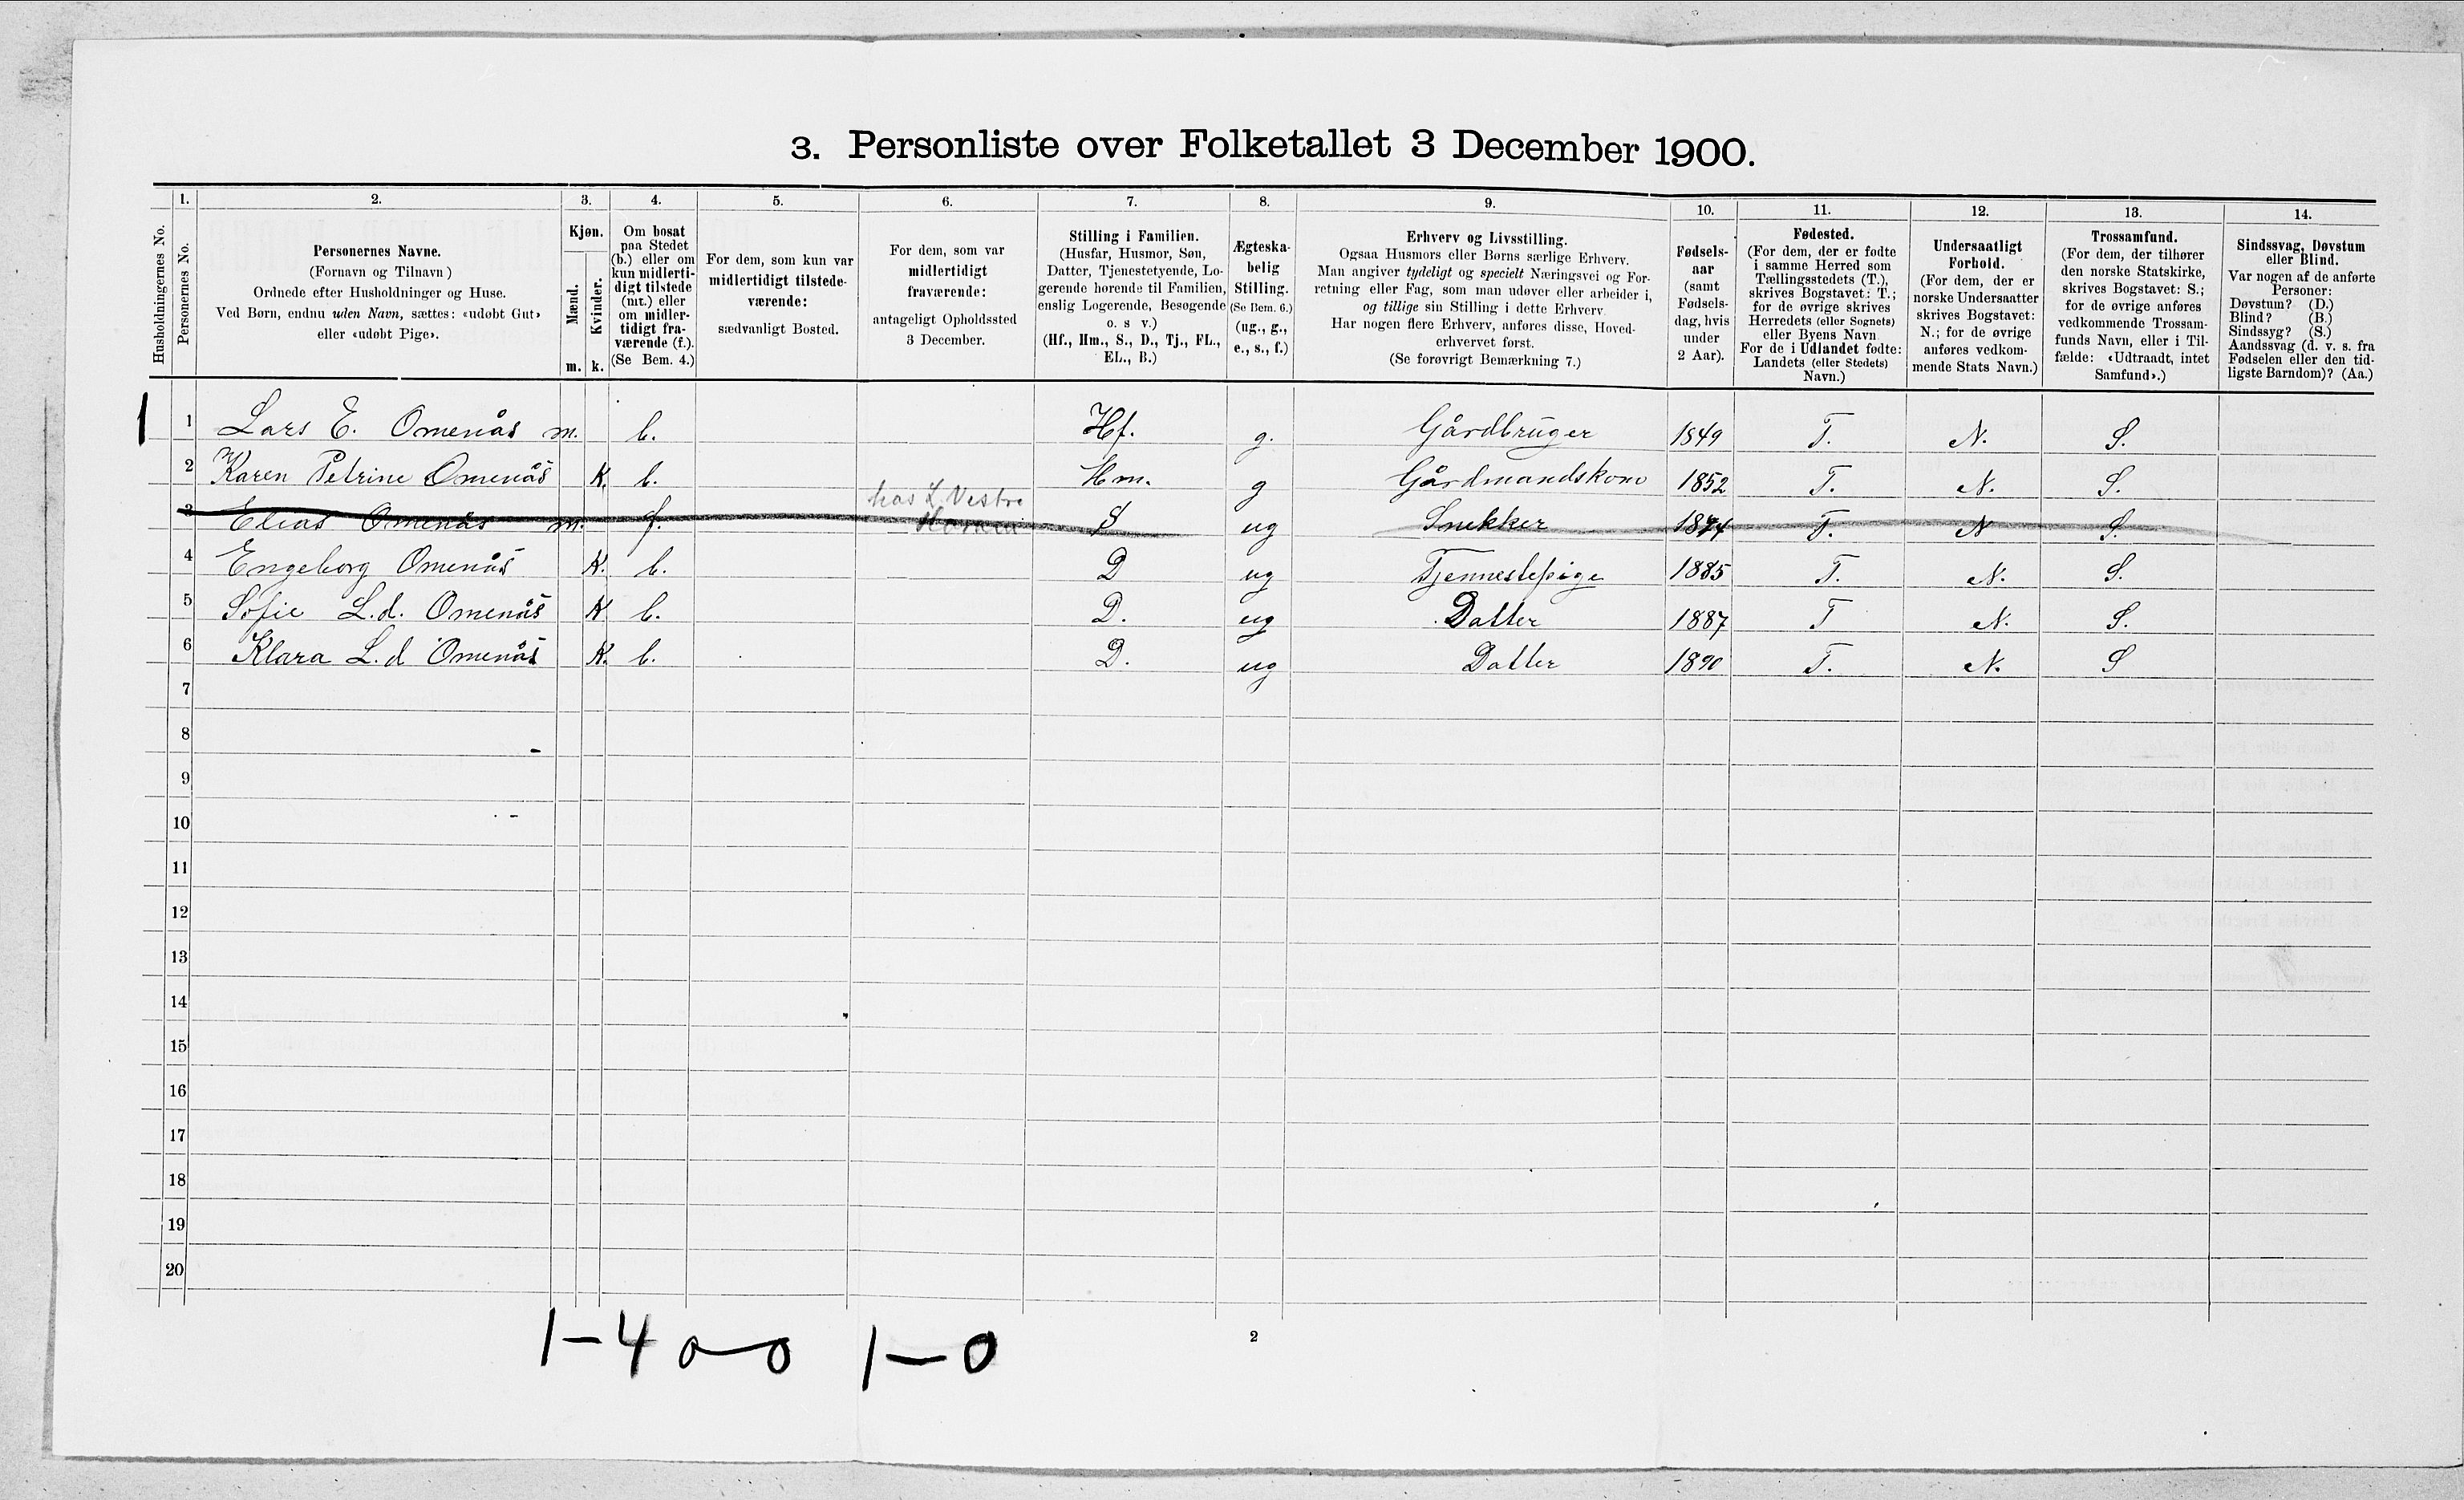 3. Personliste over Folketallet 3 December 1900.
Husholdningernes No.
1.
Personernes No.
2.
Personernes Navne.
(Fornavn og Tilnavn)
Ordnede efter Husholdninger og Huse.
Ved Børn, endnu uden Navn, sættes: «udøbt Gut»
eller «udøbt Pige».
3.
Kjøn.
Mænd.
Kvinder.
m. k.
4.
Om bosat
paa Stedet
(b.) eller om
kun midlerti-
digt tilstede
(mt.) eller
om midler-
tidigt fra-
værende (f.).
(Se Bem. 4.)
5.
For dem, som kun var
midlertidigt tilstede-
værende:
sædvanligt Bosted.
6.
For dem, som var
midlertidigt
fraværende:
antageligt Opholdssted
3 December.
7.
Stilling i Familien.
(Husfar, Husmor, Søn,
Datter, Tjenestetyende, Lo-
gerende hørende til Familien,
enslig Logerende, Besøgende
o. s v.)
(Hf., Hm., S., D., Tj., FL.,
EL., B.)
8.
Ægteska-
belig
Stilling.
(Se Bem. 6.)
(ug., g.,
e., s., f.)
9.
Erhverv og Livsstilling.
Ogsaa Husmors eller Børns særlige Erhverv.
Man angiver tydeligt og specielt Næringsvei og For-
retning eller Fag, som man udøver eller arbeider i,
og tillige sin Stilling i dette Erhverv.
Har nogen flere Erhverv, anføres disse, Hoved-
erhvervet først.
(Se forøvrigt Bemærkning 7.)
10.
Fødsels-
aar
(samt
Fødsels-
dag, hvis
under
2 Aar).
11.
Fødested.
(For dem, der er fødte
i samme Herred som
Tællingsstedets (T.),
skrives Bogstavet: T.;
for de øvrige skrives
Herredets (eller Sognets)
eller Byens Navn
For de i Udlandet fødte:
Landets (eller Stedets)
Navn.)
12.
Undersaatligt
Forhold.
(For dem, der er
norske Undersaatter
skrives Bogstavet:
N.; for de øvrige
anføres vedkom-
mende Stats Navn.)
13.
Trossamfund.
(For dem, der tilhører
den norske Statskirke,
skrives Bogstavet: S.;
for de øvrige anføres
vedkommende Trossam-
funds Navn, eller i Til-
fælde: «Udtraadt, intet
Samfund».)
14.
Sindssvag, Døvstum
eller Blind.
Var nogen af de anførte
Personer:
Døvstum? (D.)
Blind? (B.)
Sindssyg? (S.)
Aandssvag (d. v. s. fra
Fødselen eller den tid-
ligste Barndom)? (Aa.)
1 1 Lars E. Omenås m. b. Hf. g. Gårdbruger 1849 T. N. S.
2 Karen Petrine Omenås K. b. Hm. g Gårdmandskone 1852 T. N. S.
hos L Vestre
3 Elias Omenås m. f. S ug Snekker 1874 T. N S.
4 Engeborg Omenås K. b. D ug Tjennestepige 1885 T. N. S.
5 Sofie L.d. Omenås K b. D. ug Datter 1887 T N. S.
6 Klara L.d Omenås K. b. D. ug Datter 1890 T. N. S
7
8
9
10
11
12
13
14
15
16
17
18
19
20
1–4 0–0 1–0
2